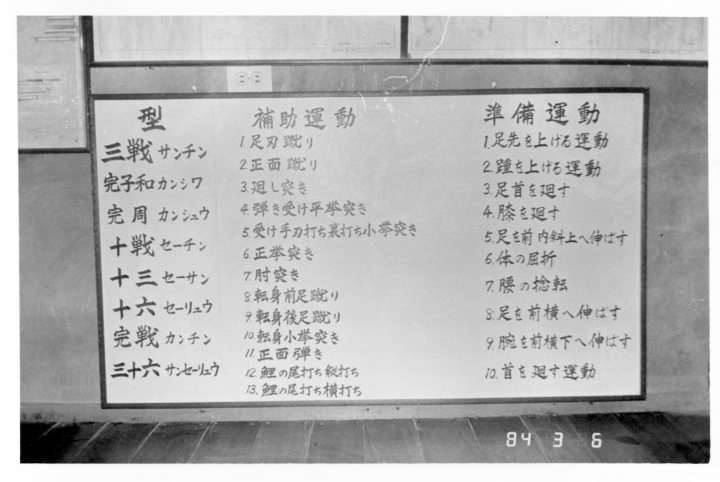 型
三戦 サンチン
完子和 カンシワ
完周 カンシュウ
十戦 セーチン
十三 セーサン
十六 セーリュウ
完戦 カンチン
三十六 サンセーリュウ
補助運動
1.足刃蹴り
2.正面蹴り
3.廻し突き
4.弾き受け平拳突き
5.受け手刃打ち裏打ち小拳突き
6.正拳突き
7.肘突き
8.転身前足蹴り
9.転身後足蹴り
10.転身小拳突き
11.正面弾き
12.鯉の尾打ち縦打ち
13.鯉の尾打ち横打ち
準備運動
1.足先を上げる運動
2.踵を上げる運動
3.足首を廻す
4.膝を廻す
5.足を前内斜上へ伸ばす
6.体の屈折
7.腰の捻転
8.足を前横へ伸ばす
9.腕を前横下へ伸ばす
10.首を廻す運動
84 3 6